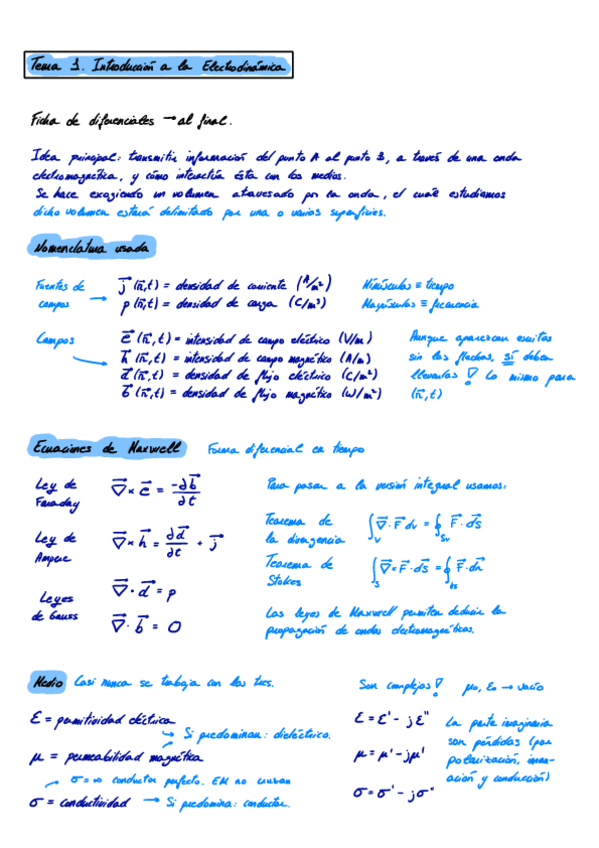 Tema 1. Introducción a la Electrodinámica
Ficha de diferenciales → al final.
Idea principal: transmitir información del punto A al punto B, a través de una onda
electromagnética, y cómo interactúa ésta con los medios.
Se hace escogiendo un volumen atravesado por la onda, el cual estudiamos
dicho volumen estará delimitado por una o varias superficies.
Nomenclatura usada
Fuentes de campos →
j⃗ (r⃗,t) = densidad de corriente (A/m²)
ρ (r⃗,t) = densidad de carga (C/m³)
Minúsculas ≡ tiempo
Mayúsculas ≡ frecuencia
Campos →
e⃗ (r⃗,t) = intensidad de campo eléctrico (V/m)
h⃗ (r⃗,t) = intensidad de campo magnético (A/m)
d⃗ (r⃗,t) = densidad de flujo eléctrico (C/m²)
b⃗ (r⃗,t) = densidad de flujo magnético (W/m²)
Aunque aparezcan escritas
sin las flechas, sí deben
llevarlas! Lo mismo para
(r⃗,t)
Ecuaciones de Maxwell Forma diferencial en tiempo
Ley de Faraday
∇⃗ × e⃗ = -∂b⃗/∂t
Ley de Ampere
∇⃗ × h⃗ = ∂d⃗/∂t + j⃗
Leyes de Gauss
∇⃗ · d⃗ = ρ
∇⃗ · b⃗ = 0
Para pasar a la versión integral usamos:
Teorema de la divergencia
∫_V ∇⃗·F⃗ dv = ∮_Sv F⃗·dS⃗
Teorema de Stokes
∫_S ∇⃗×F⃗·dS⃗ = ∮ F⃗·dr⃗
Las leyes de Maxwell permiten deducir la
propagación de ondas electromagnéticas.
Medio Casi nunca se trabaja con los tres.
ε = permitividad eléctrica
↳ Si predominan: dieléctrico.
μ = permeabilidad magnética
σ = ∞ conductor perfecto. EM no cruzan
σ = conductividad → Si predomina: conductor.
Son complejos! μ₀, ε₀ → vacío
ε = ε' - jε''
μ = μ' - jμ'
σ = σ' - jσ''
La parte imaginaria
son pérdidas (por
polarización, iman-
ación y conducción)